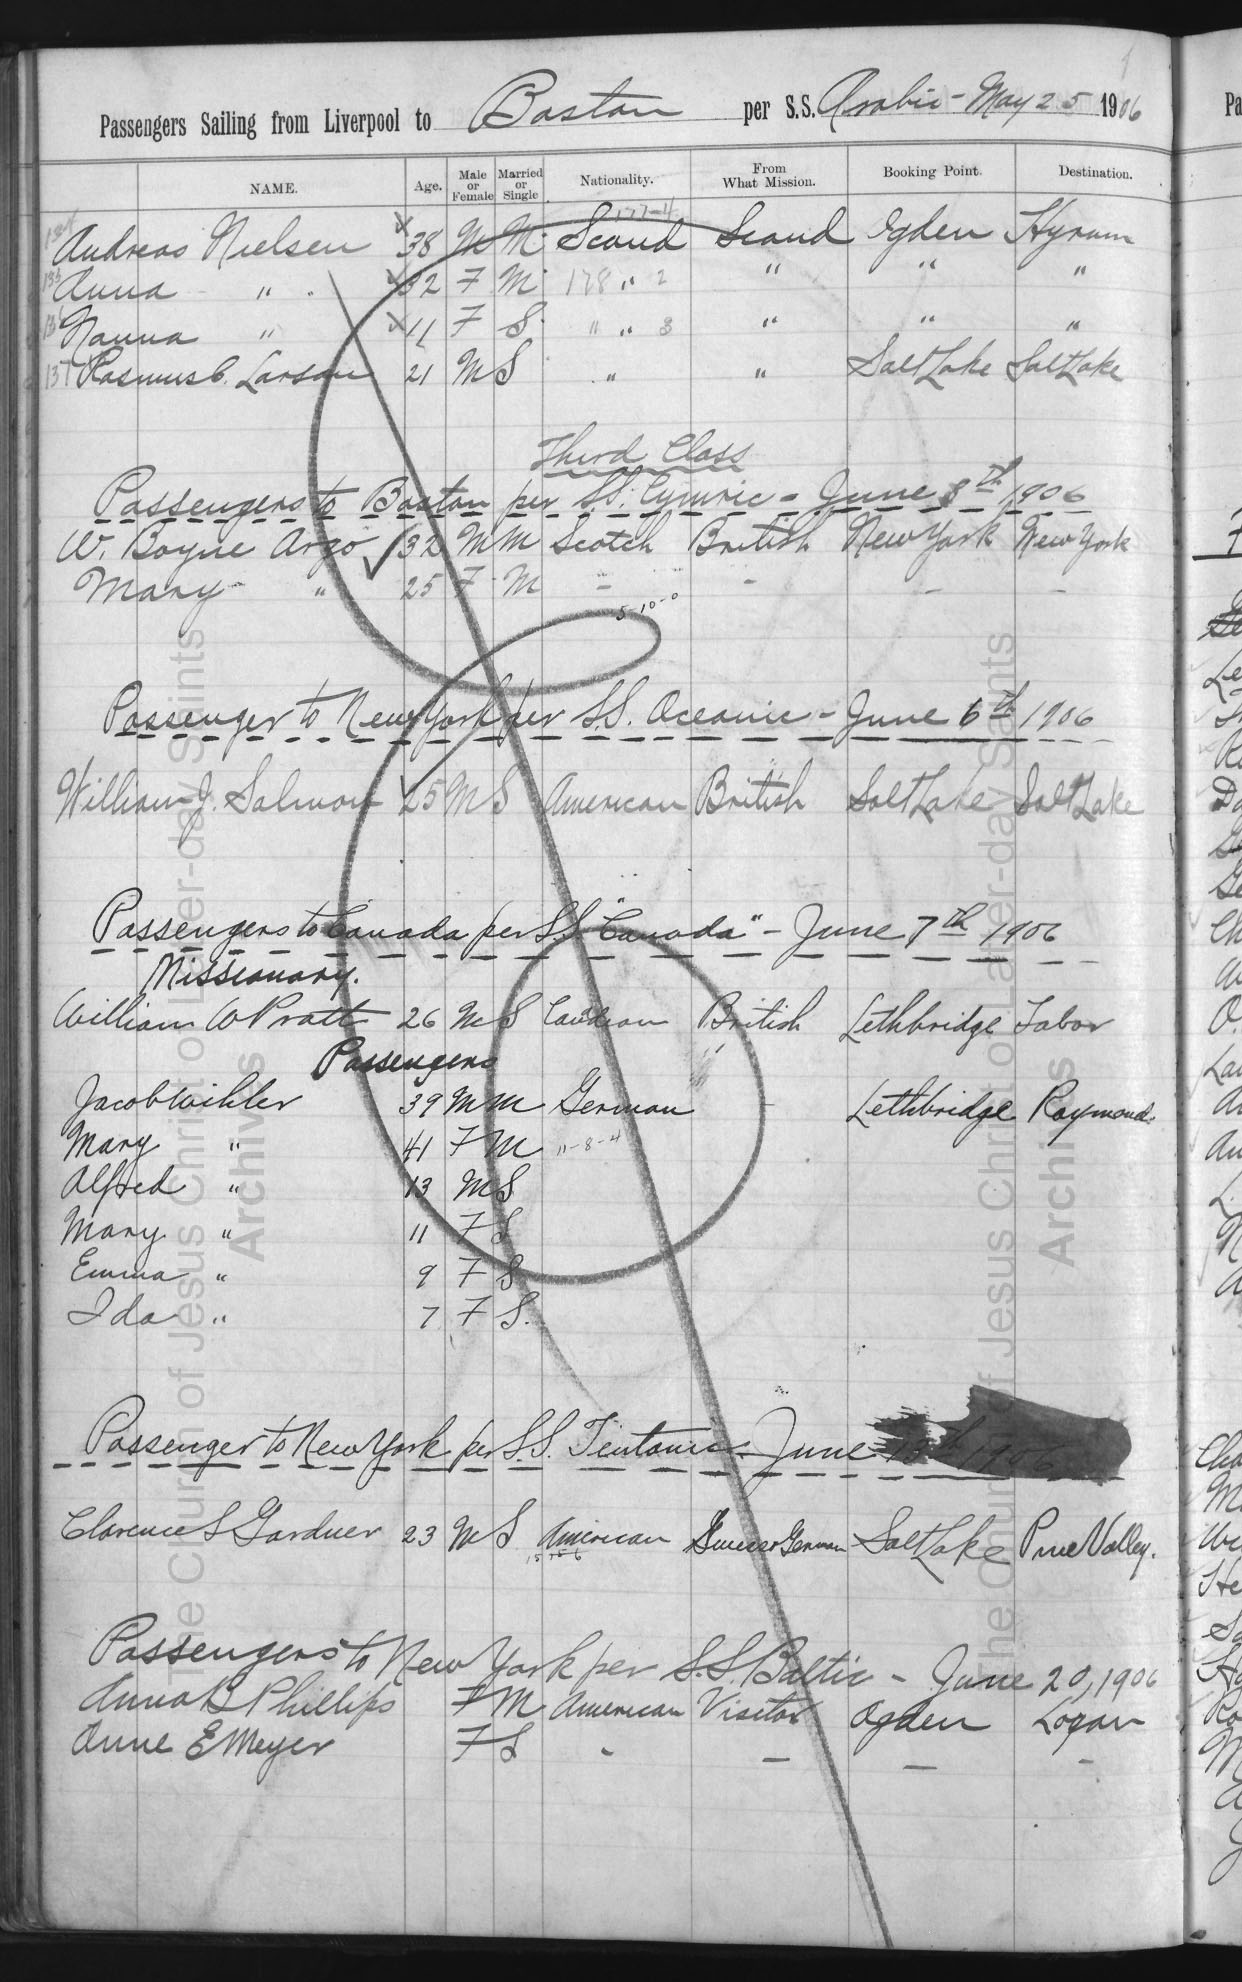 Passengers Sailing from Liverpool to Boston per S.S. Arabic - May 25 1906
NAME. Age. Male or Female Married or Single Nationality. From What Mission. Booking Point. Destination.
177-4
Andreas Nielsen 38 M M Scand Scand Ogden Hyrum
135 Anna " 32 F M 178 " 2 " " "
136 Nanna " 11 F S " " 3 " " "
137 Rasmus C. Larson 21 M S " " Salt Lake Salt Lake
Third Class
Passengers to Boston per S.S. Cymric - June 8th 1906
W. Boyne Argo 32 M M Scotch British New York New York
Mary " 25 F M " - - -
5-10-0
Passenger to New York per S.S. Oceanic - June 6th 1906
William J. Salmon 25 M S American British Salt Lake Salt Lake
Passengers to Canada per S.S. "Canada" - June 7th 1906
Missionary.
William W Pratt 26 M S British Lethbridge Tabor
Passengers
Jacob Wihler 39 M M German Lethbridge Raymond.
Mary " 41 F M 11-8-4
Alfred " 13 M S
Mary " 11 F S
Emma " 9 F S
Ida " 7 F S.
Passenger to New York per S.S. Teutonic - June 13th 1906
Clarence S Gardner 23 M S American Swiss & German Salt Lake Pine Valley.
Passengers to New York per S.S. Baltic - June 20, 1906
Anna B Phillips F M American Visitor Ogden Logan
Anne E Meyer F S - - - -
The Church of Jesus Christ of Latter-day Saints
Archives
The Church of Jesus Christ of Latter-day Saints
Archives